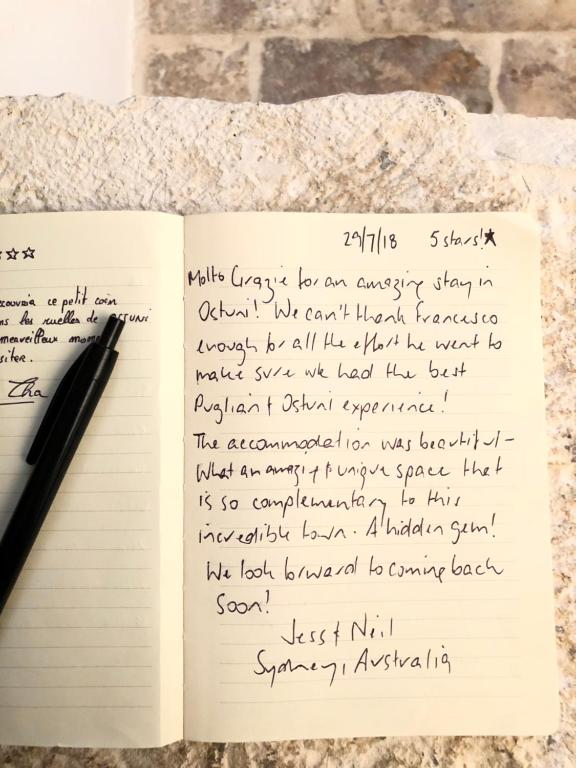 ☆☆
ce petit coin
les ruelles de
merveilleux
29/7/18 5 stars!★
Molto Grazie for an amazing stay in
Ostuni! We can't thank Francesco
enough for all the effort he went to
make sure we had the best
Puglian & Ostuni experience!
The accommodation was beautiful -
What an amazing & unique space that
is so complementary to this
incredible town. A hidden gem!
We look forward to coming back
soon!
Jess & Neil
Sydney, Australia